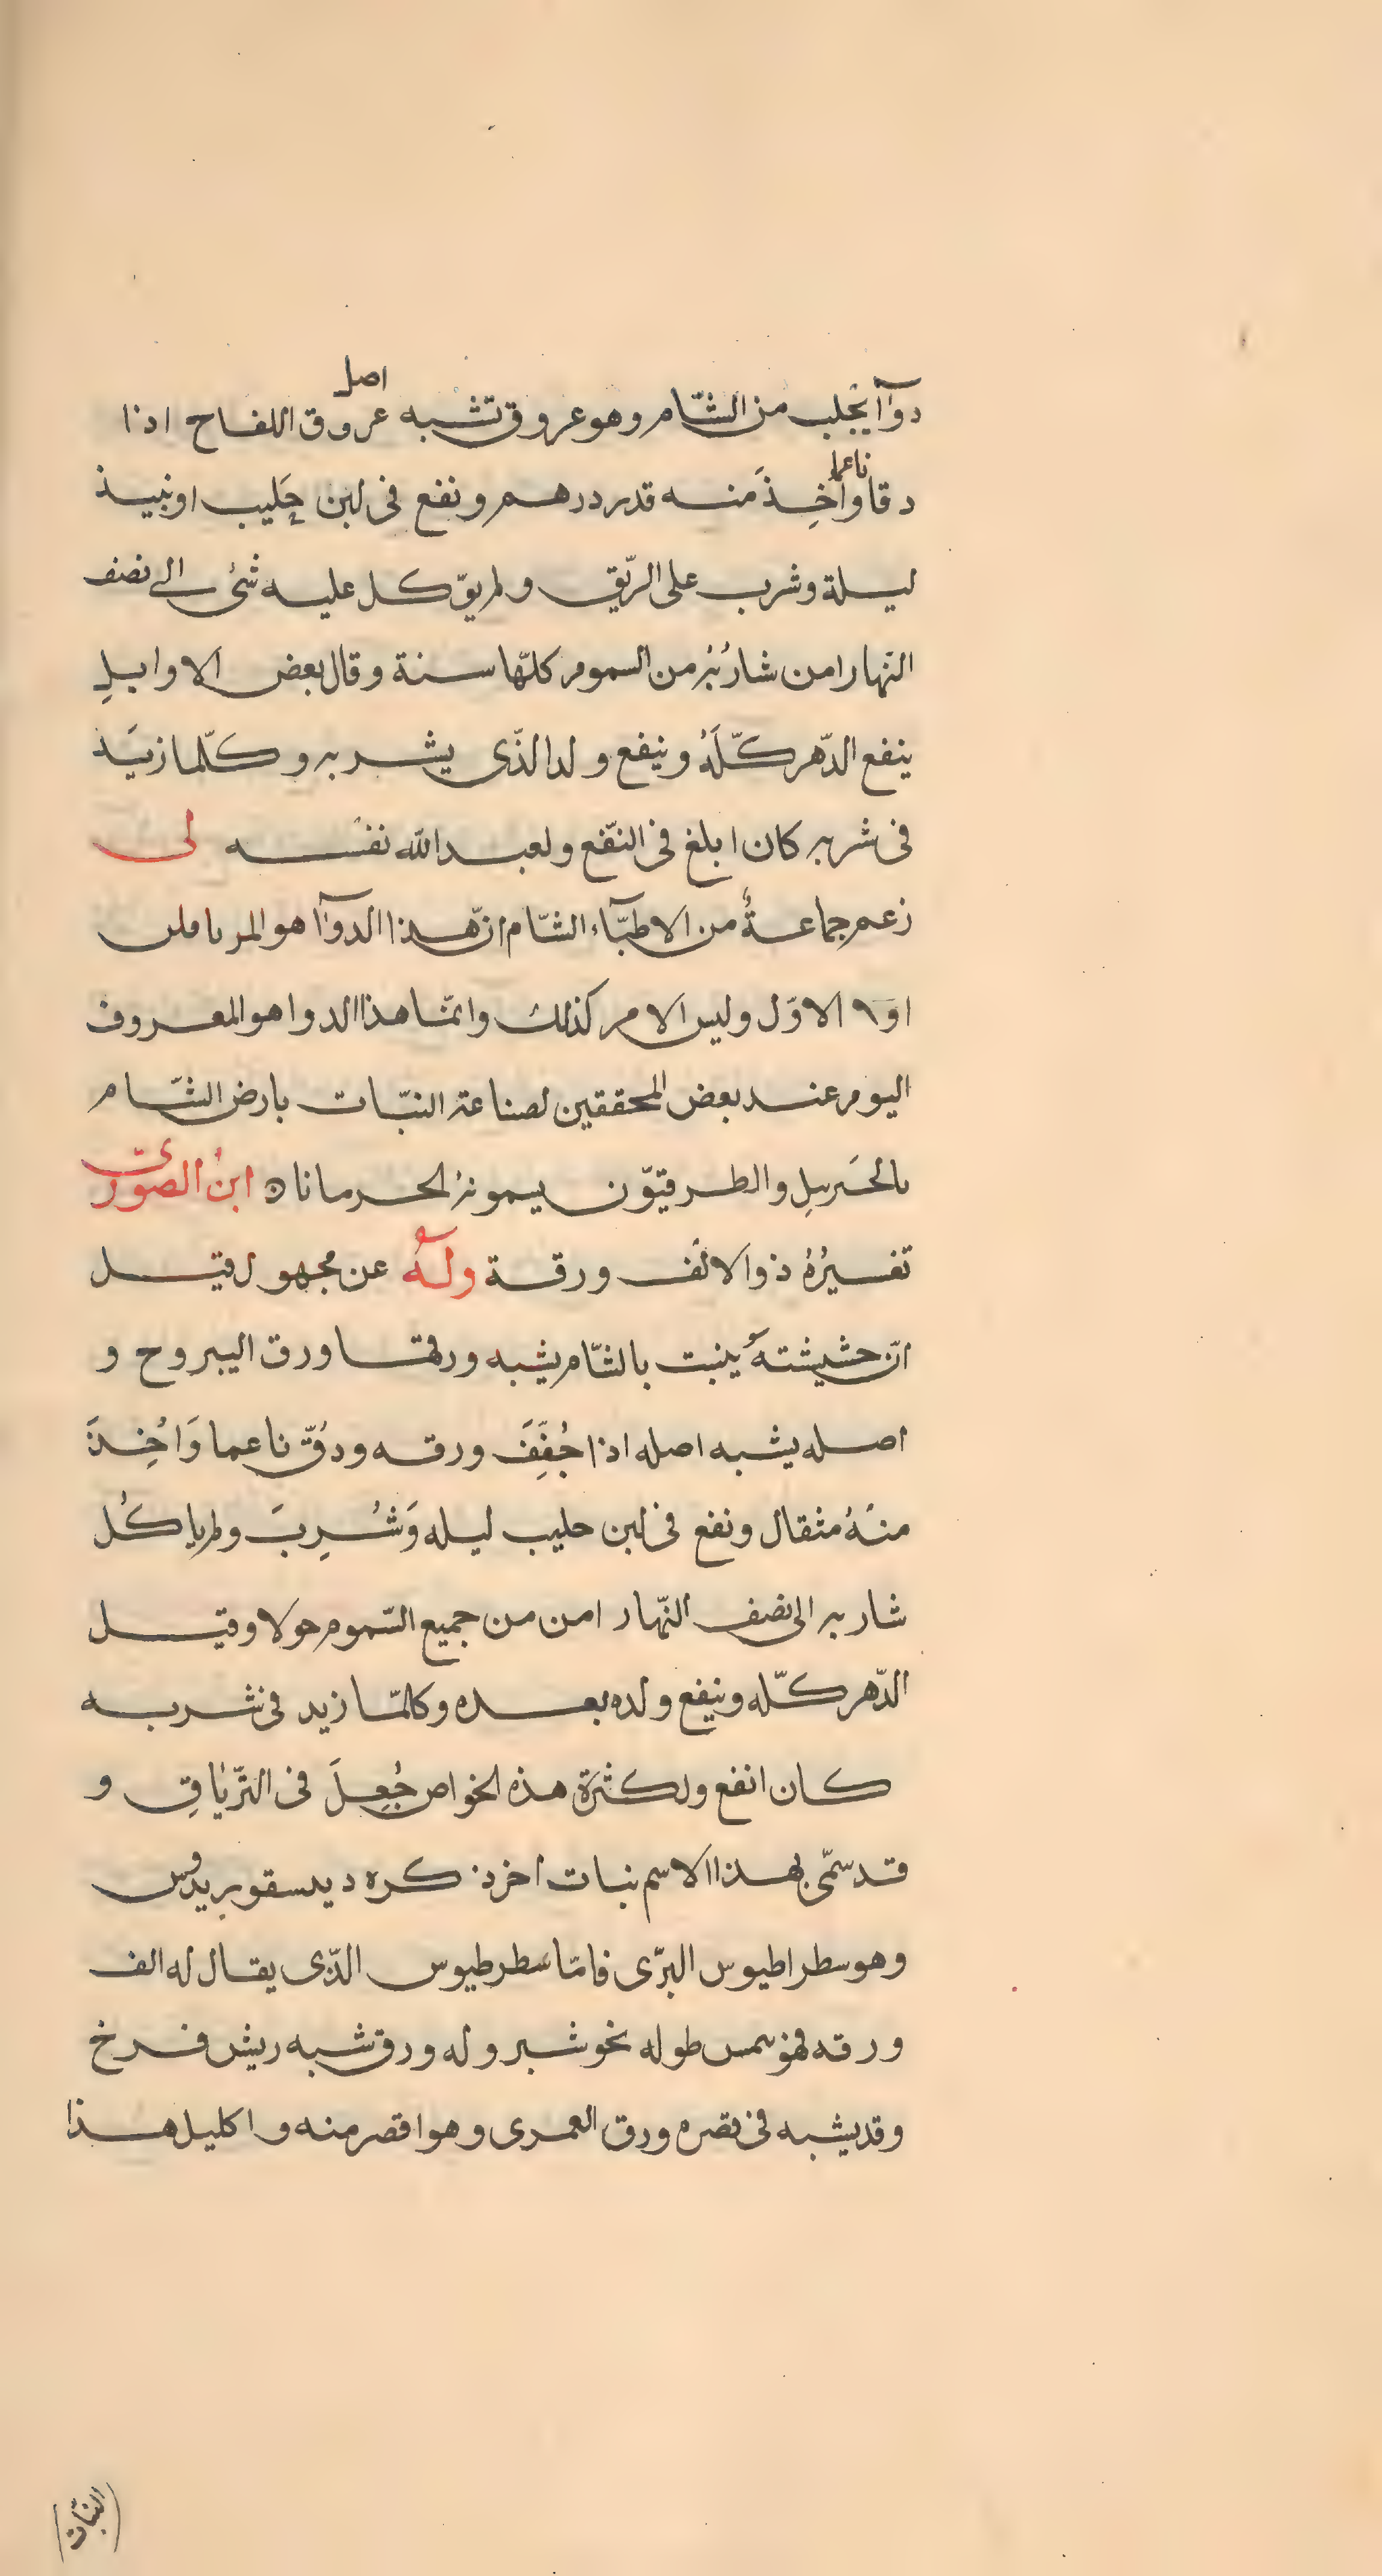 اصل
دوآا يجلب من الشّام وهو عروق تشبه عروق اللفاح اذا
ناعما
دقا واُخِذَ منه قدر درهم ونفع فى لبن حَليب او نبيذ
ليلة وشرب على الرّيق ولم يؤكل عليه شئ الى نصف
النّهار امن شاربُهُ من السموم كلّها سنة وقال بعض الاوايلِ
ينفع الدّهر كلّهُ وينفع ولد الذّى يشربه وكلّما زيَد
فى شربه كان ابلغ فى النّفع ولعبد الله نفسه لى
زعم جماعةُ من الاطبّآء الشّام انّ هذا الدوآا هو المريافلن
الاوّل وليس الامر كذلك وانمّا هذا الدوا هو المعروف
اليوم عند بعض المحققين لصناعة النبّات بارض الشّام
بالحَربيلِ والطرقيوّن يسمونهُ الحرمانا ابنُ الصورىّ
تفسيُرُهُ ذو الالف ورقة ولهُ عن مجهول قيل
انّ حشيشتهُ ينبت بالشّام يشبه ورقها ورق اليبروح و
اصله يشبه اصله اذا جُفِّفَ ورقه ودُقّ ناعما وَاُخِذَ
منهُ مثقال ونفع فى لبن حليب ليله وَشُرِبَ ولم ياكُل
شاربه الى نصف النّهار امن من جميع السّموم حولا وقيل
الدّهر كلّه وينفع ولده بعده وكلمّا زيد فى شربه
كان انفع ولكثرة هذه الخواص جُعِلَ فى التّرياقِ و
قد سمّى بهذا الاسم نبات اخر ذكره ديسقوريدوس
وهو سطراطيوس البرّى فامّا سطرطيوس الذّى يقال له الف
ورقه فهو تمس طوله نحو شبر وله ورق شبه ريش فرخ
وقد يشبه فى قصره ورق العمرى وهو اقصر منه واكليل هذا
النبّات